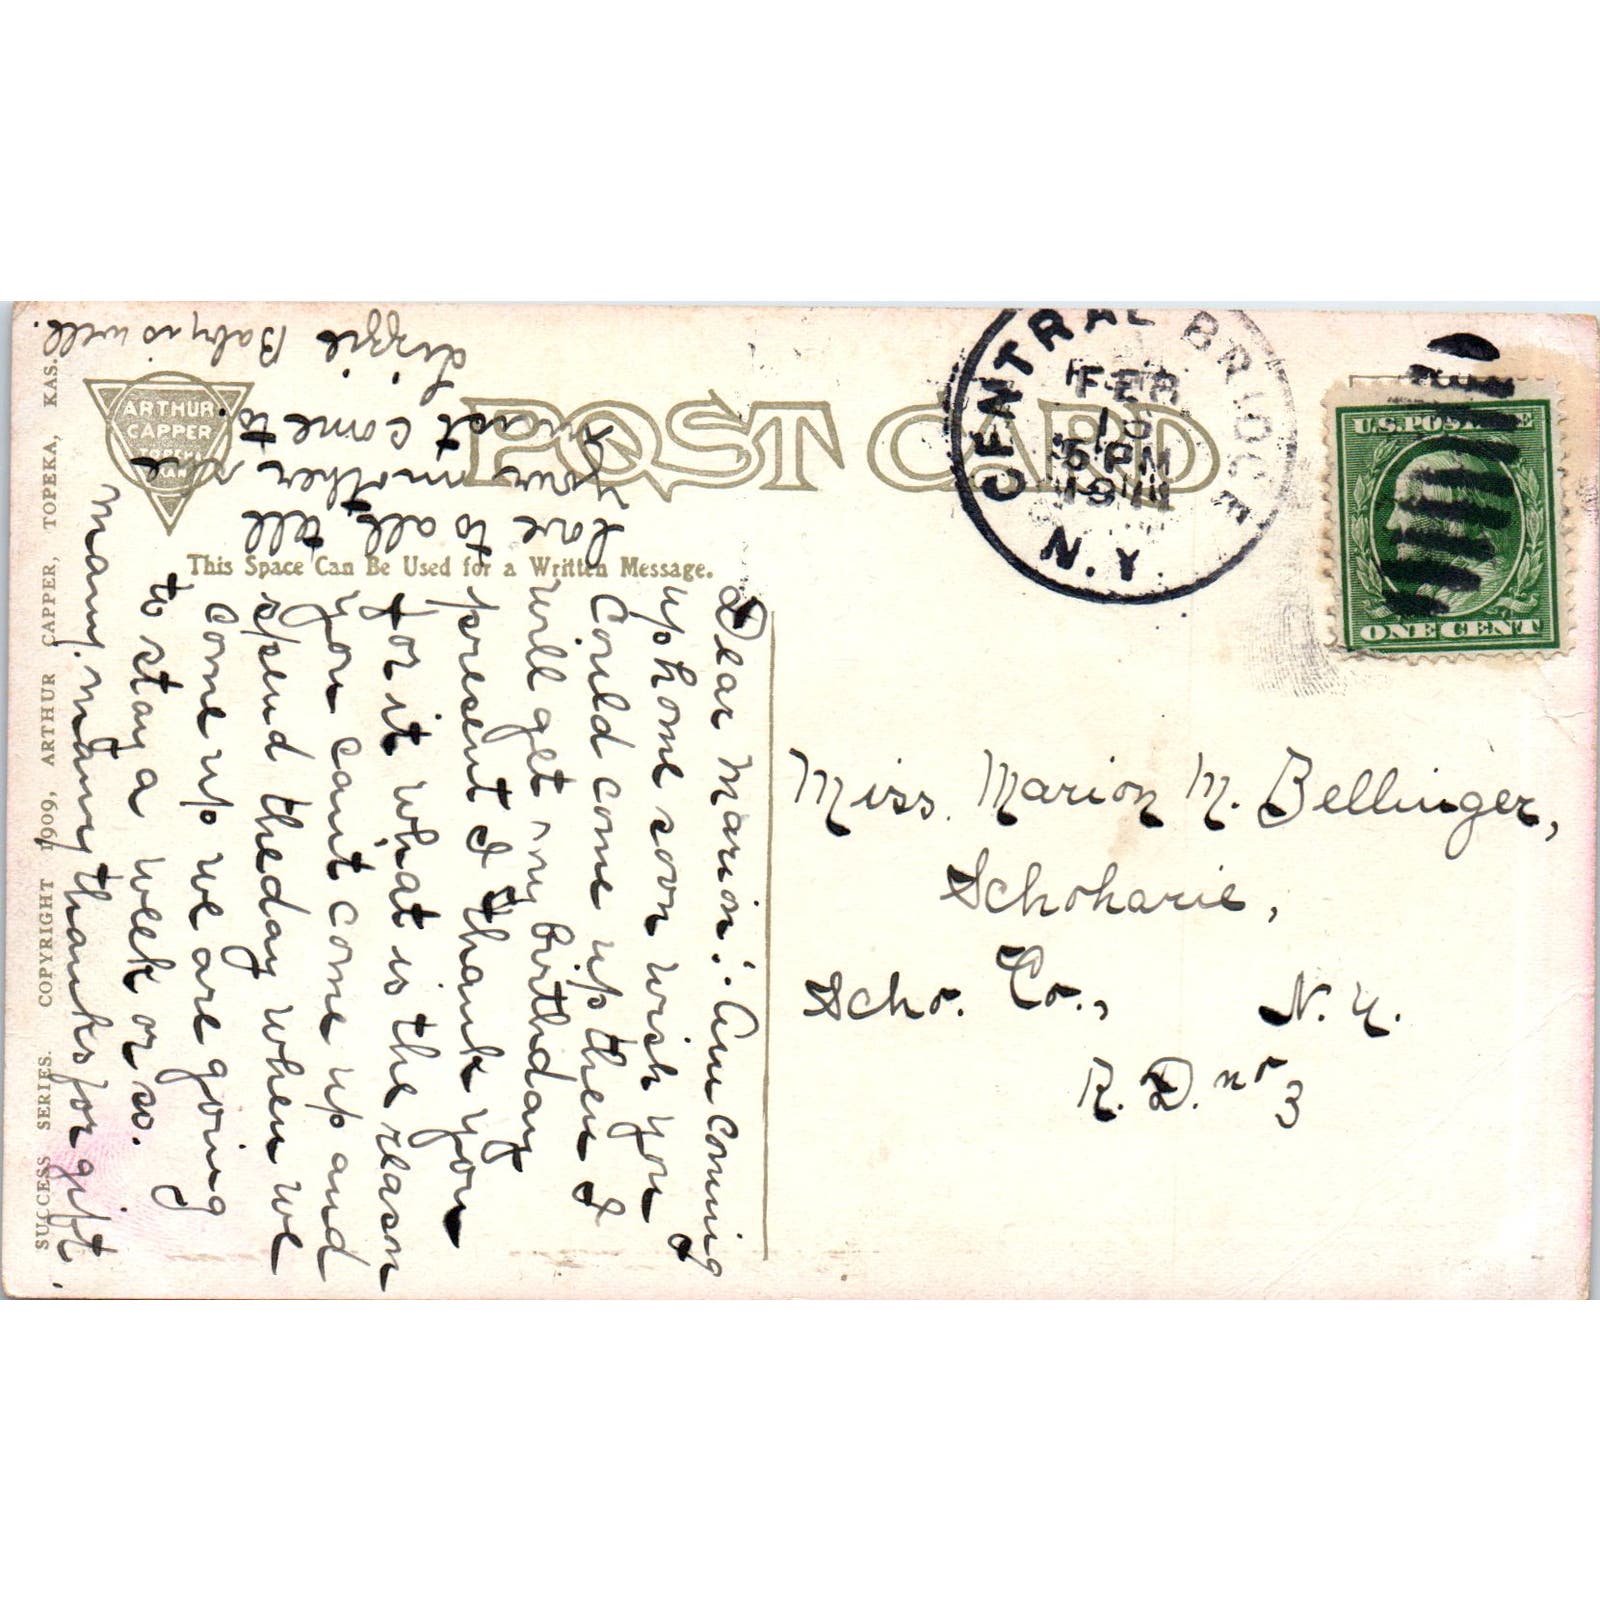 SUCCESS SERIES. COPYRIGHT 1909, ARTHUR CAPPER, TOPEKA, KAS.
ARTHUR
CAPPER
TOPEKA
KAN.
POST CARD
This Space Can Be Used for a Written Message.
CENTRAL BRIDGE
FEB
5 PM
N.Y.
U.S. POSTAGE
ONE CENT
Dear Marion: Am coming
up home soon wish you
could come up then I
will get my birthday
present I thank you
for it what is the reason
you cant come up and
spend the day when we
come up we are going
to stay a week or so.
many, many thanks for gift.
love to all, tell
your mother she
must come to.
Lizzie Baby is well.
Miss. Marion M. Bellinger,
Schoharie,
Scho. Co., N. Y.
R. D. no 3